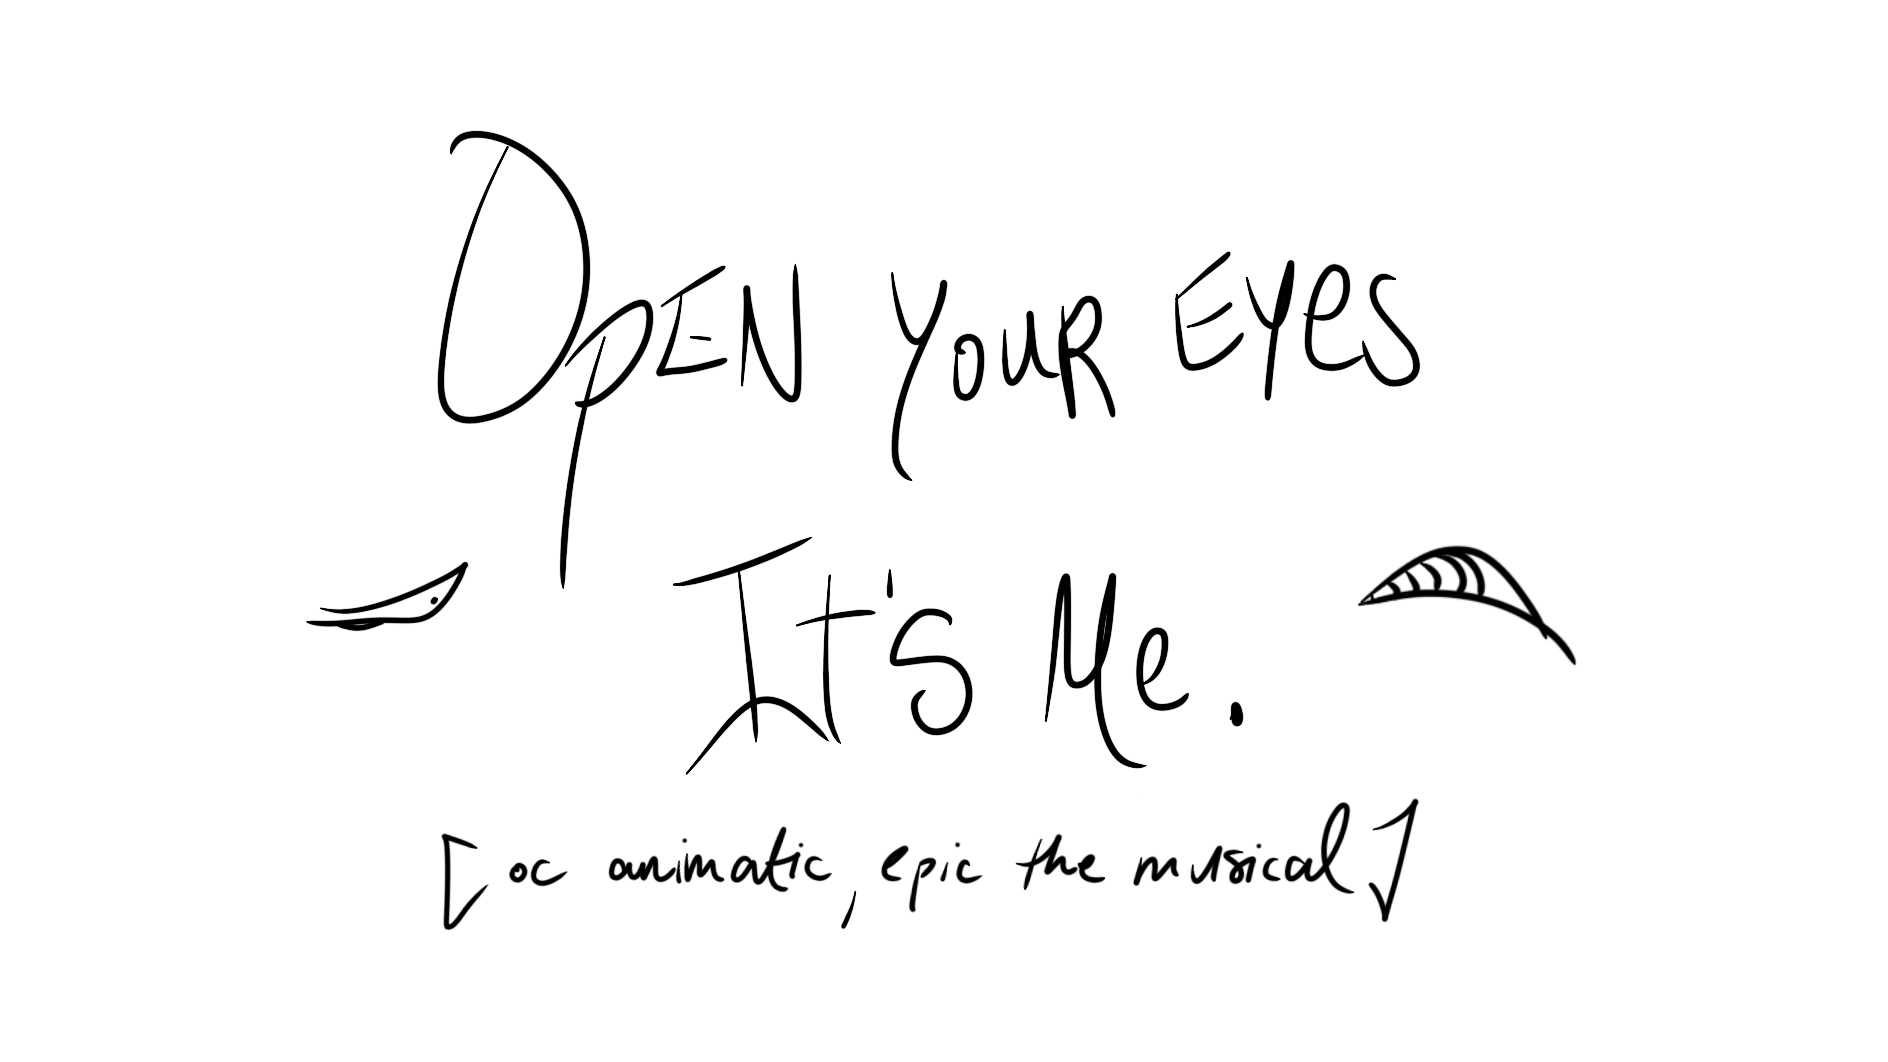 OPEN YOUR EYES
It's Me.
[oc animatic, epic the musical]